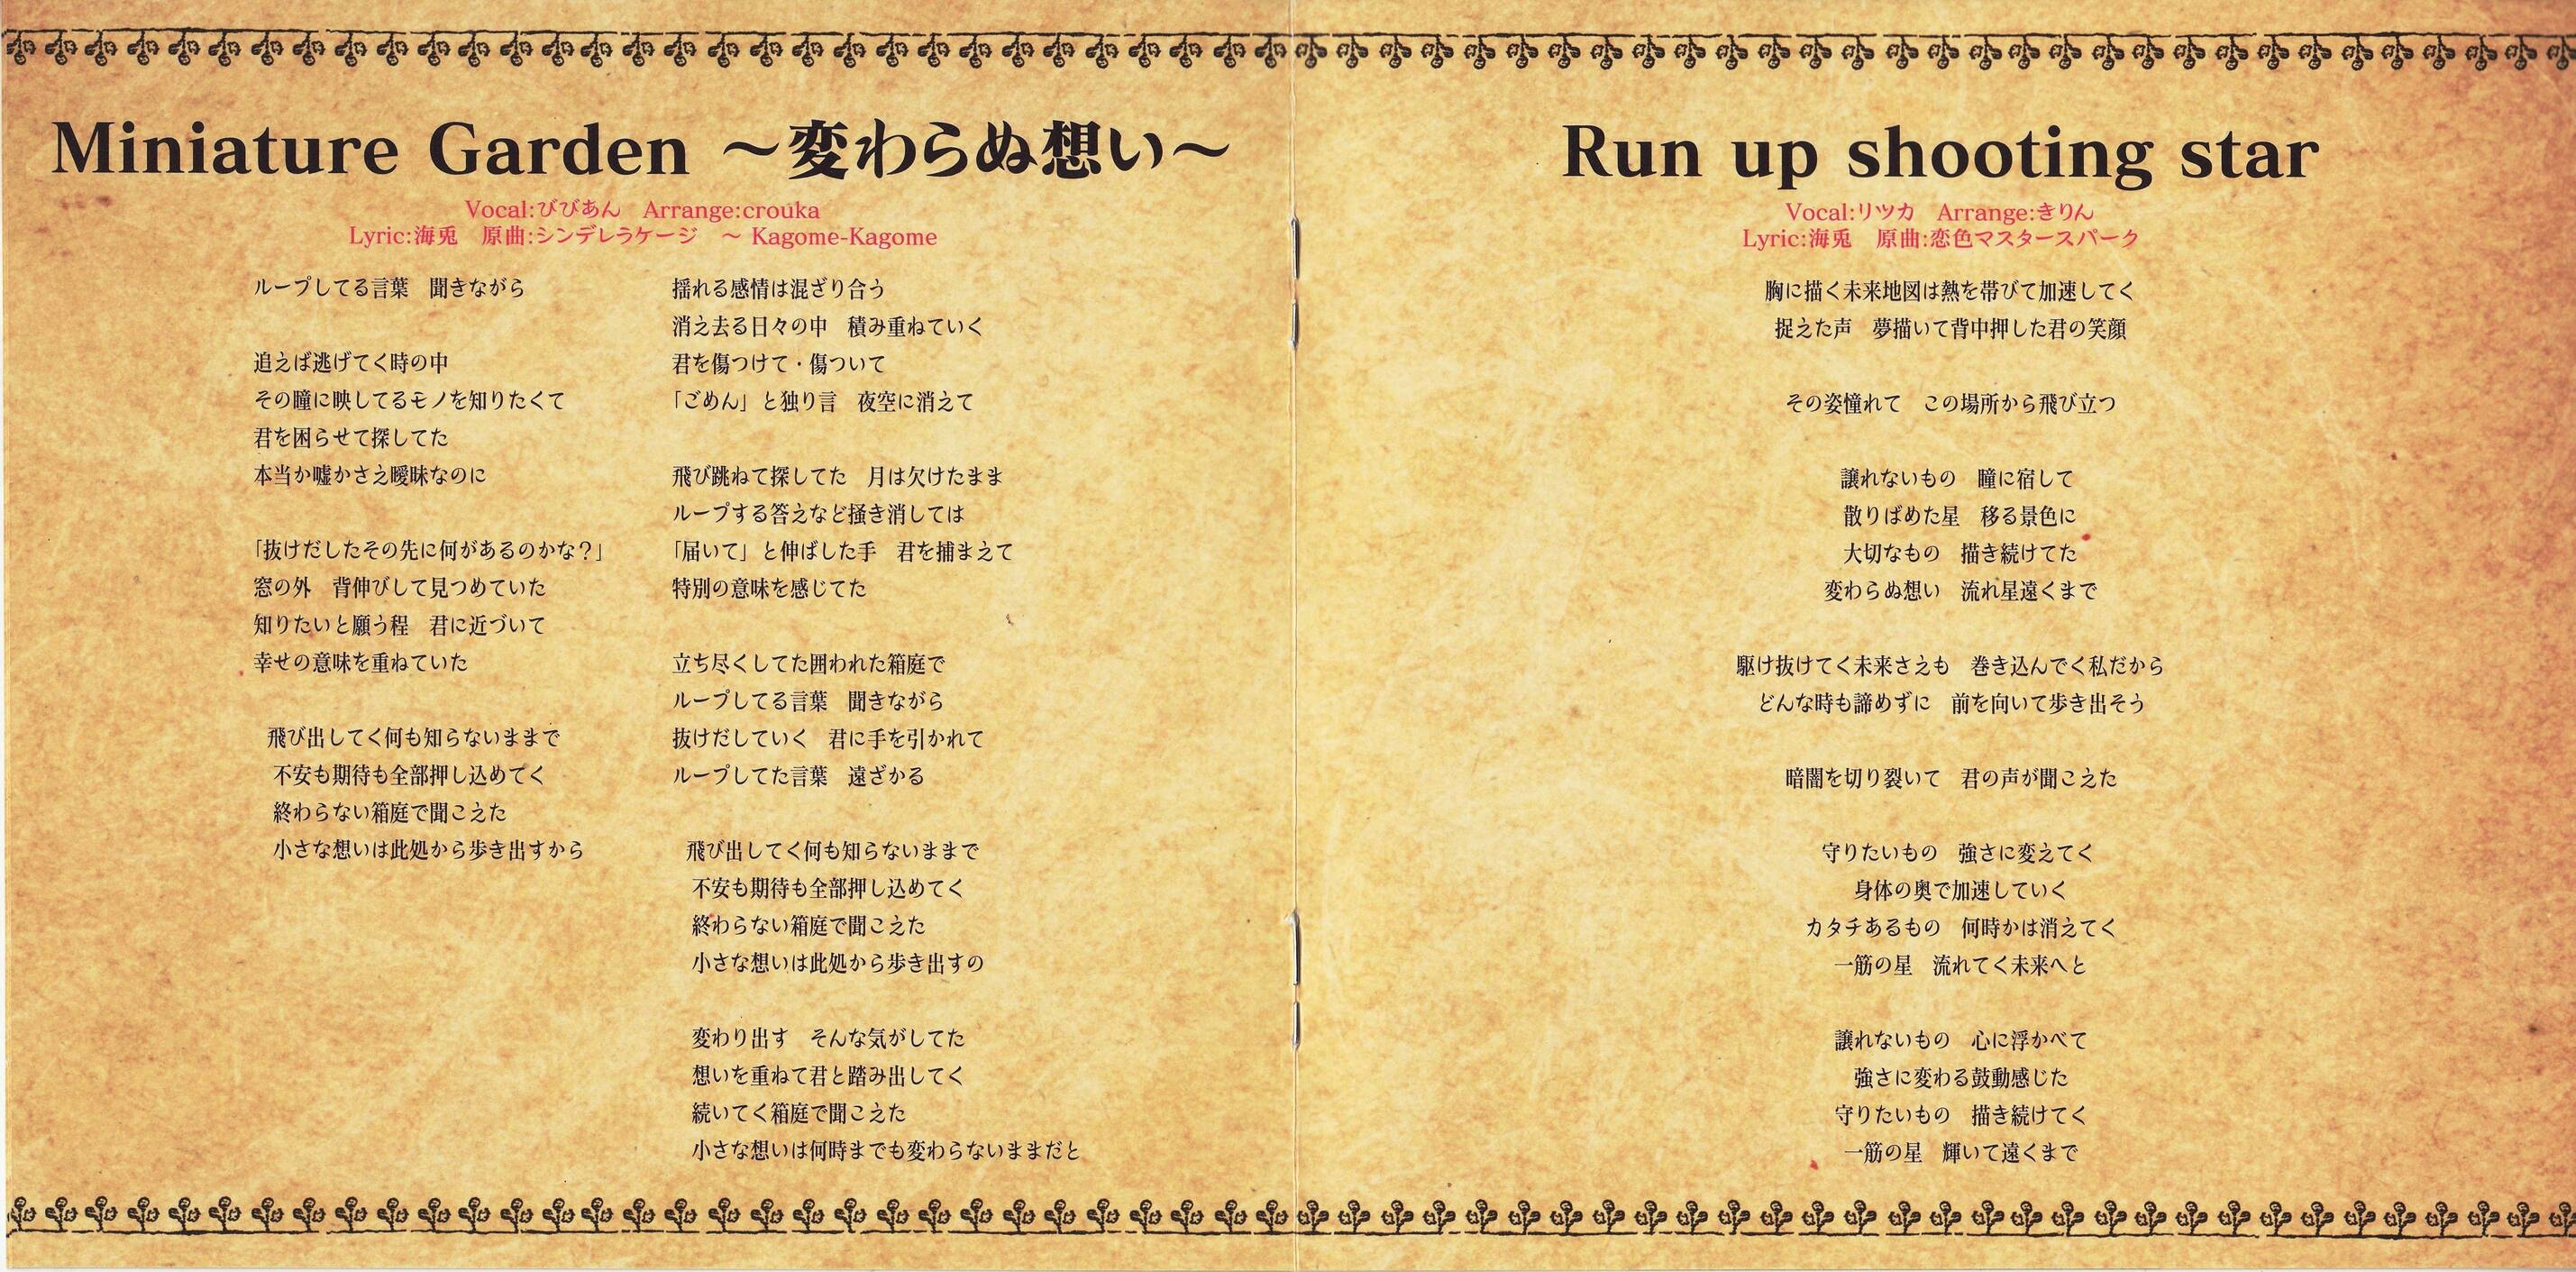 Miniature Garden ～変わらぬ想い～
Vocal:びびあん　Arrange:crouka
Lyric:海兎　原曲:シンデレラケージ　～ Kagome-Kagome
ループしてる言葉　聞きながら
追えば逃げてく時の中
その瞳に映してるモノを知りたくて
君を困らせて探してた
本当か嘘かさえ曖昧なのに
「抜けだしたその先に何があるのかな？」
窓の外　背伸びして見つめていた
知りたいと願う程　君に近づいて
幸せの意味を重ねていた
飛び出してく何も知らないままで
不安も期待も全部押し込めてく
終わらない箱庭で聞こえた
小さな想いは此処から歩き出すから
揺れる感情は混ざり合う
消え去る日々の中　積み重ねていく
君を傷つけて・傷ついて
「ごめん」と独り言　夜空に消えて
飛び跳ねて探してた　月は欠けたまま
ループする答えなど掻き消しては
「届いて」と伸ばした手　君を捕まえて
特別の意味を感じてた
立ち尽くしてた囲われた箱庭で
ループしてる言葉　聞きながら
抜けだしていく　君に手を引かれて
ループしてた言葉　遠ざかる
飛び出してく何も知らないままで
不安も期待も全部押し込めてく
終わらない箱庭で聞こえた
小さな想いは此処から歩き出すの
変わり出す　そんな気がしてた
想いを重ねて君と踏み出してく
続いてく箱庭で聞こえた
小さな想いは何時までも変わらないままだと
Run up shooting star
Vocal:リツカ　Arrange:きりん
Lyric:海兎　原曲:恋色マスタースパーク
胸に描く未来地図は熱を帯びて加速してく
捉えた声　夢描いて背中押した君の笑顔
その姿憧れて　この場所から飛び立つ
譲れないもの　瞳に宿して
散りばめた星　移る景色に
大切なもの　描き続けてた
変わらぬ想い　流れ星遠くまで
駆け抜けてく未来さえも　巻き込んでく私だから
どんな時も諦めずに　前を向いて歩き出そう
暗闇を切り裂いて　君の声が聞こえた
守りたいもの　強さに変えてく
身体の奥で加速していく
カタチあるもの　何時かは消えてく
一筋の星　流れてく未来へと
譲れないもの　心に浮かべて
強さに変わる鼓動感じた
守りたいもの　描き続けてく
一筋の星　輝いて遠くまで